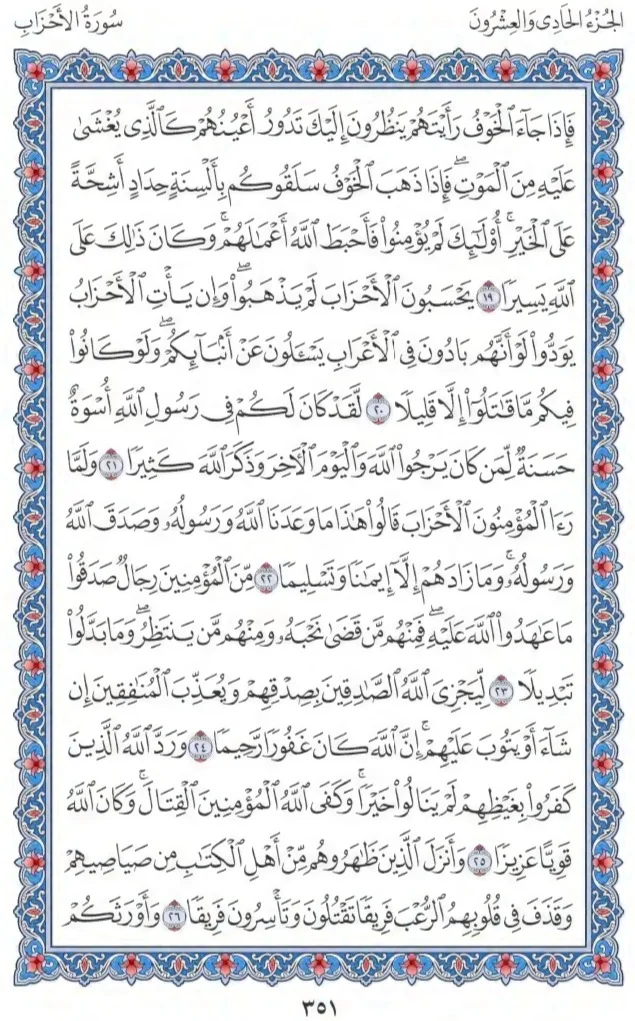 الجُزْءُ الحَادِى وَالعِشْرُونَ
سُورَةُ الأَحْزَابِ
فَإِذَا جَآءَ ٱلْخَوْفُ رَأَيْتَهُمْ يَنظُرُونَ إِلَيْكَ تَدُورُ أَعْيُنُهُمْ كَٱلَّذِى يُغْشَىٰ
عَلَيْهِ مِنَ ٱلْمَوْتِۖ فَإِذَا ذَهَبَ ٱلْخَوْفُ سَلَقُوكُم بِأَلْسِنَةٍ حِدَادٍ أَشِحَّةً
عَلَى ٱلْخَيْرِۚ أُو۟لَٰٓئِكَ لَمْ يُؤْمِنُوا۟ فَأَحْبَطَ ٱللَّهُ أَعْمَٰلَهُمْۚ وَكَانَ ذَٰلِكَ عَلَى
ٱللَّهِ يَسِيرًا ١٩ يَحْسَبُونَ ٱلْأَحْزَابَ لَمْ يَذْهَبُوا۟ۖ وَإِن يَأْتِ ٱلْأَحْزَابُ
يَوَدُّوا۟ لَوْ أَنَّهُم بَادُونَ فِى ٱلْأَعْرَابِ يَسْـَٔلُونَ عَنْ أَنۢبَآئِكُمْۖ وَلَوْ كَانُوا۟
فِيكُم مَّا قَٰتَلُوٓا۟ إِلَّا قَلِيلًا ٢٠ لَّقَدْ كَانَ لَكُمْ فِى رَسُولِ ٱللَّهِ أُسْوَةٌ
حَسَنَةٌ لِّمَن كَانَ يَرْجُوا۟ ٱللَّهَ وَٱلْيَوْمَ ٱلْءَاخِرَ وَذَكَرَ ٱللَّهَ كَثِيرًا ٢١ وَلَمَّا
رَءَا ٱلْمُؤْمِنُونَ ٱلْأَحْزَابَ قَالُوا۟ هَٰذَا مَا وَعَدَنَا ٱللَّهُ وَرَسُولُهُۥ وَصَدَقَ ٱللَّهُ
وَرَسُولُهُۥۚ وَمَا زَادَهُمْ إِلَّآ إِيمَٰنًا وَتَسْلِيمًا ٢٢ مِّنَ ٱلْمُؤْمِنِينَ رِجَالٌ صَدَقُوا۟
مَا عَٰهَدُوا۟ ٱللَّهَ عَلَيْهِۖ فَمِنْهُم مَّن قَضَىٰ نَحْبَهُۥ وَمِنْهُم مَّن يَنتَظِرُۖ وَمَا بَدَّلُوا۟
تَبْدِيلًا ٢٣ لِّيَجْزِىَ ٱللَّهُ ٱلصَّٰدِقِينَ بِصِدْقِهِمْ وَيُعَذِّبَ ٱلْمُنَٰفِقِينَ إِن
شَآءَ أَوْ يَتُوبَ عَلَيْهِمْۚ إِنَّ ٱللَّهَ كَانَ غَفُورًا رَّحِيمًا ٢٤ وَرَدَّ ٱللَّهُ ٱلَّذِينَ
كَفَرُوا۟ بِغَيْظِهِمْ لَمْ يَنَالُوا۟ خَيْرًاۚ وَكَفَى ٱللَّهُ ٱلْمُؤْمِنِينَ ٱلْقِتَالَۚ وَكَانَ ٱللَّهُ
قَوِيًّا عَزِيزًا ٢٥ وَأَنزَلَ ٱلَّذِينَ ظَٰهَرُوهُم مِّنْ أَهْلِ ٱلْكِتَٰبِ مِن صَيَاصِيهِمْ
وَقَذَفَ فِى قُلُوبِهِمُ ٱلرُّعْبَ فَرِيقًا تَقْتُلُونَ وَتَأْسِرُونَ فَرِيقًا ٢٦ وَأَوْرَثَكُمْ
٣٥١